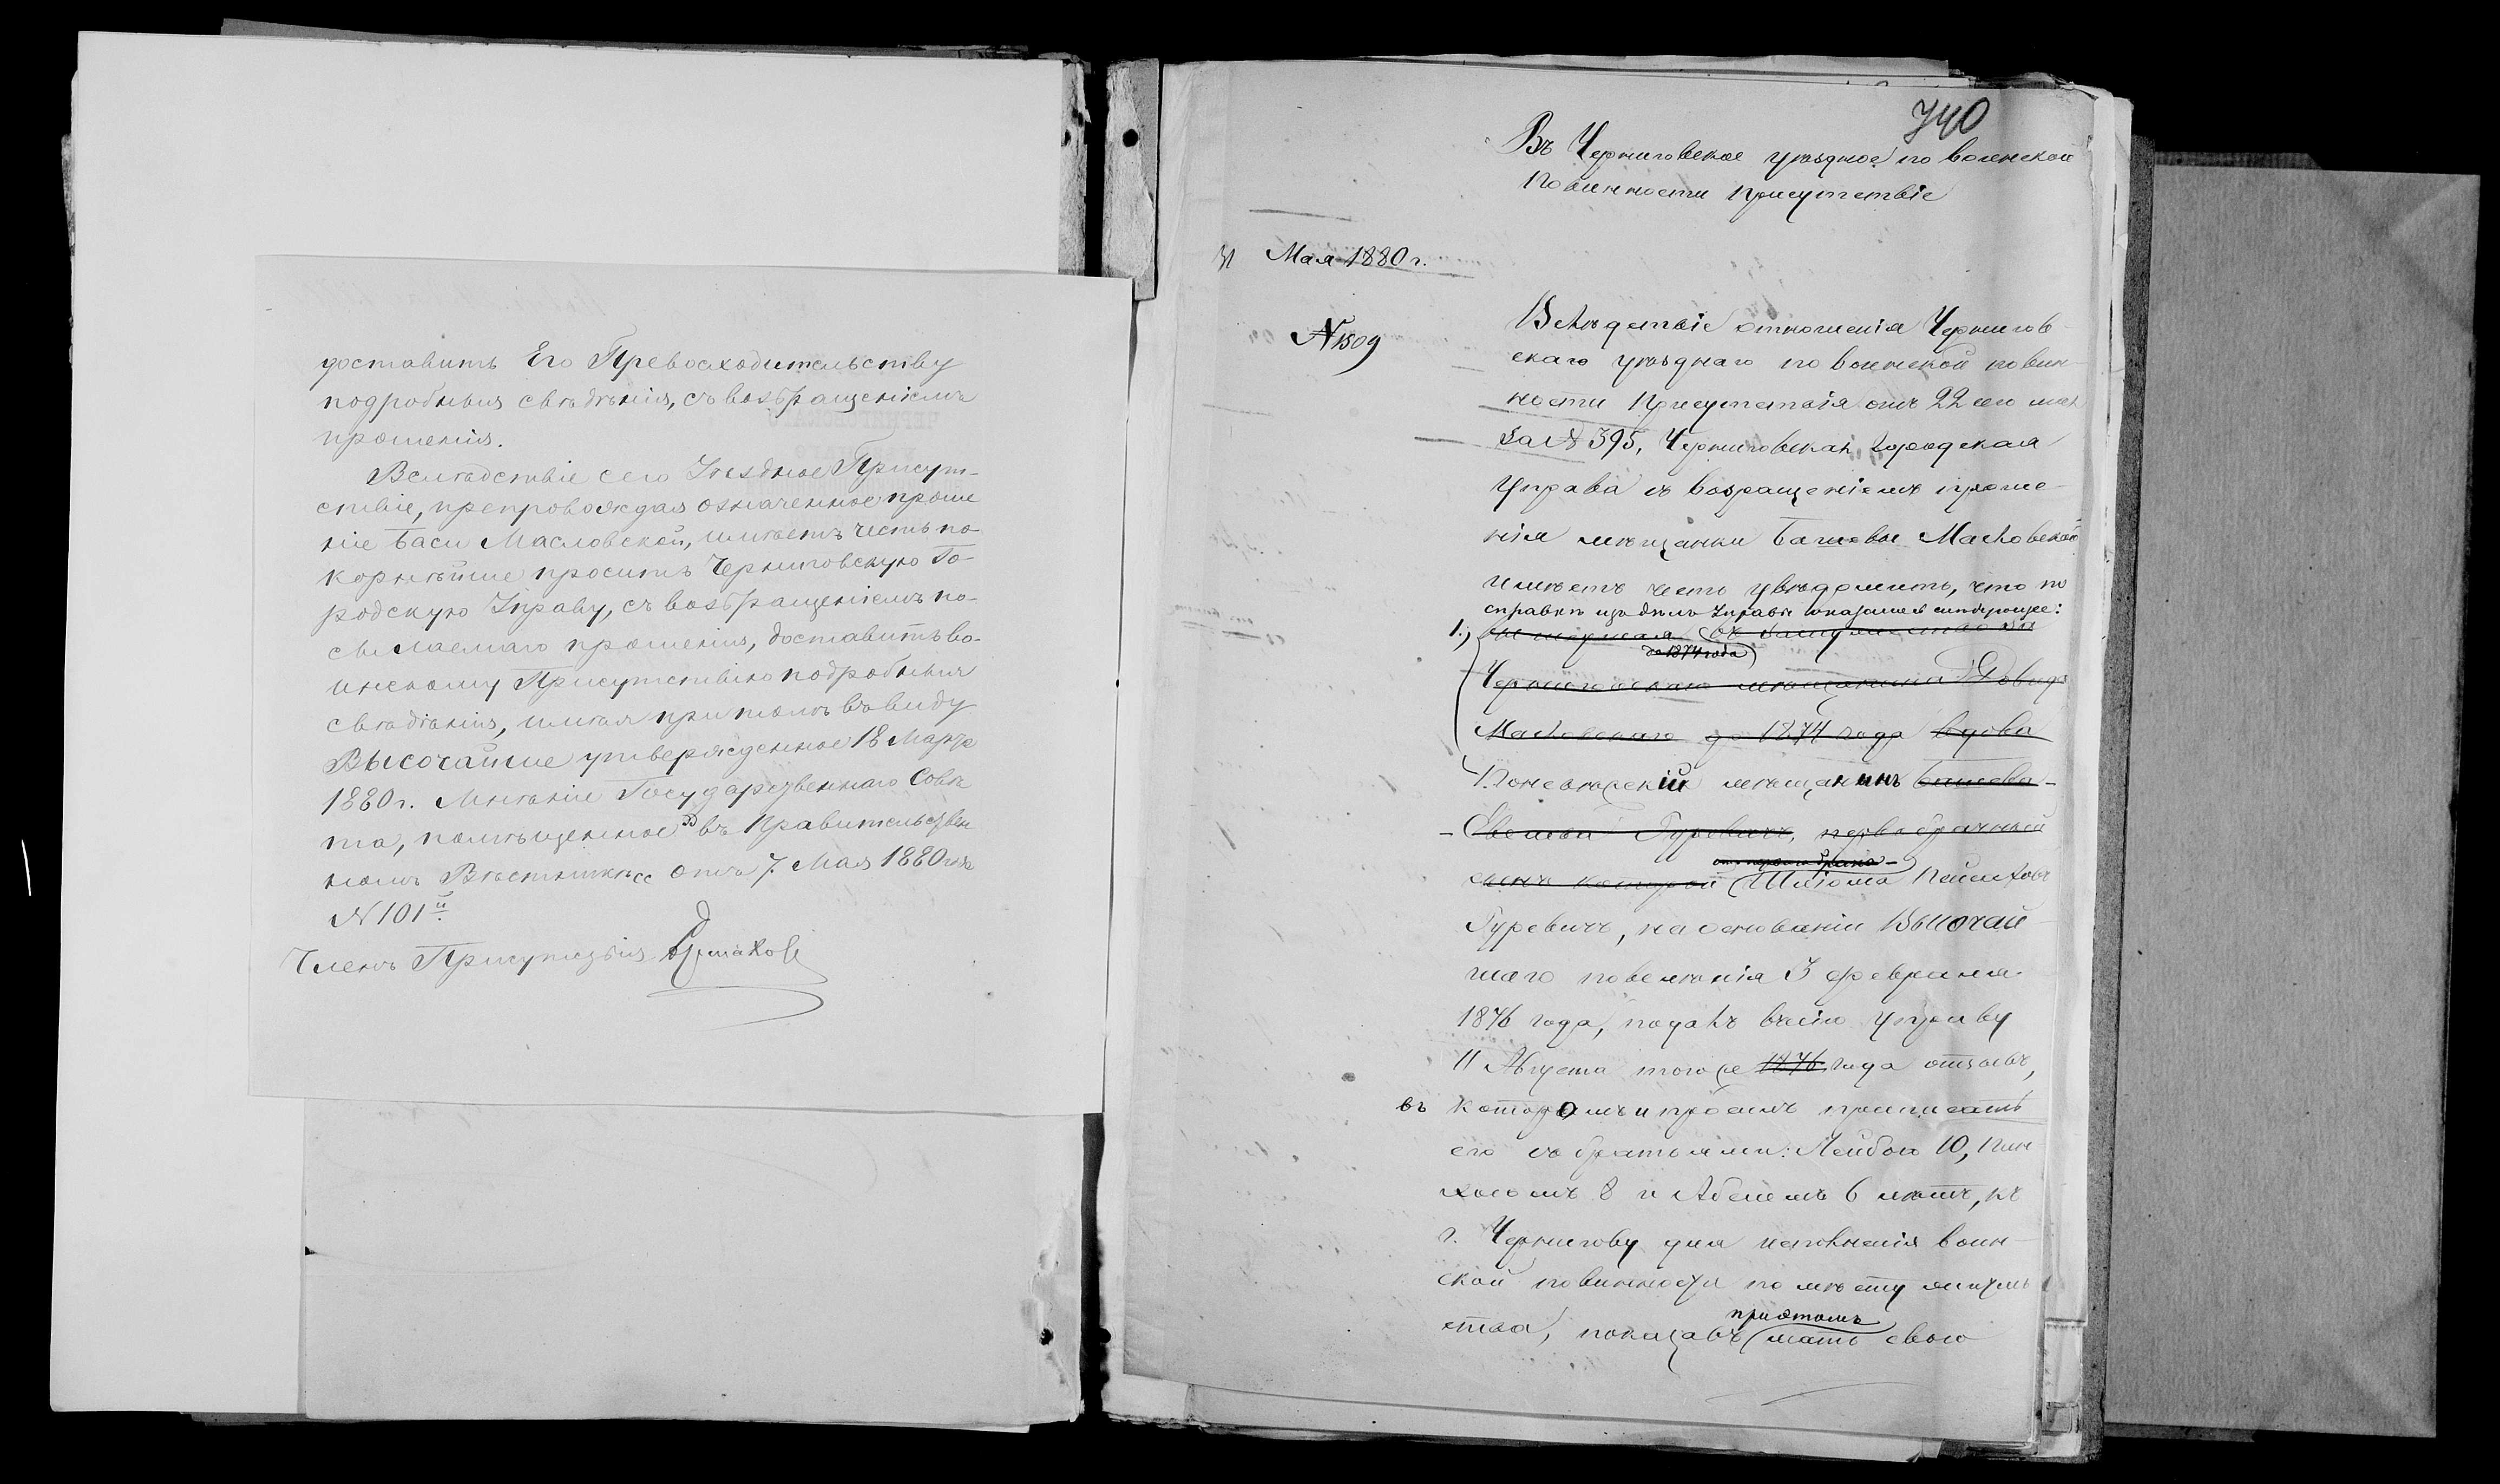 доставить Его Превосходительству
подробныя свѣдѣнія, съ возвращеніемъ
прошенія.
Вслѣдствіе сего Уѣздное Присут-
ствіе, препровождая означенное проше
ніе Баси Масловской, имѣетъ честь по-
корнѣйше просить Черниговскую Го-
родскую Управу, съ возвращеніемъ по-
сылаемаго прошенія, доставить во-
инскому Присутствію подробныя
свѣдѣнія, имѣя притомъ въ виду
Высочайше утвержденное 18 Марта
1880 г. Мнѣніе Государственнаго Совѣ
та, помѣщенное въ Правительствен
номъ Вѣстникѣ отъ 7. Мая 1880 г. за
№ 101й
Членъ Присутствія
740
Въ Черниговское уѣздное по воинской
повинности присутствіе
31 Мая 1880 г.
№ 1509
Вслѣдствіе отношенія Чернигов
скаго уѣзднаго по воинской повин
ности присутствія отъ 22 сего мая
за № 395, Черниговская городская
Управа съ возращеніемъ проше-
нія мѣщанки Башевы Масловской
имѣетъ честь увѣдомить, что по
справкѣ изъ дѣлъ Управы оказалось слѣдующее:
1.)
до 1874 года
Черниговскаго мѣщанина Довида
Масловскаго до 1874 года вдова
мѣщанинъ Башева
Гуревичъ, первобрачный
отъ перваго брака
сынъ которой Шліома Пейсахов
Гуревичъ, на основаніи Высочай
шаго повелѣнія 3 февраля
1876 года, подалъ въ сію управу
11 Августа того же 1876 года отзывъ,
въ которомъ и просилъ приписать
его съ братьями: Лейбою 10, Пин
хосомъ 8 и Абелемъ 6 лѣтъ, къ
г. Чернигову для исполненія воин
ской повинности по мѣсту житель
приэтомъ
ства, показавъ мать свою